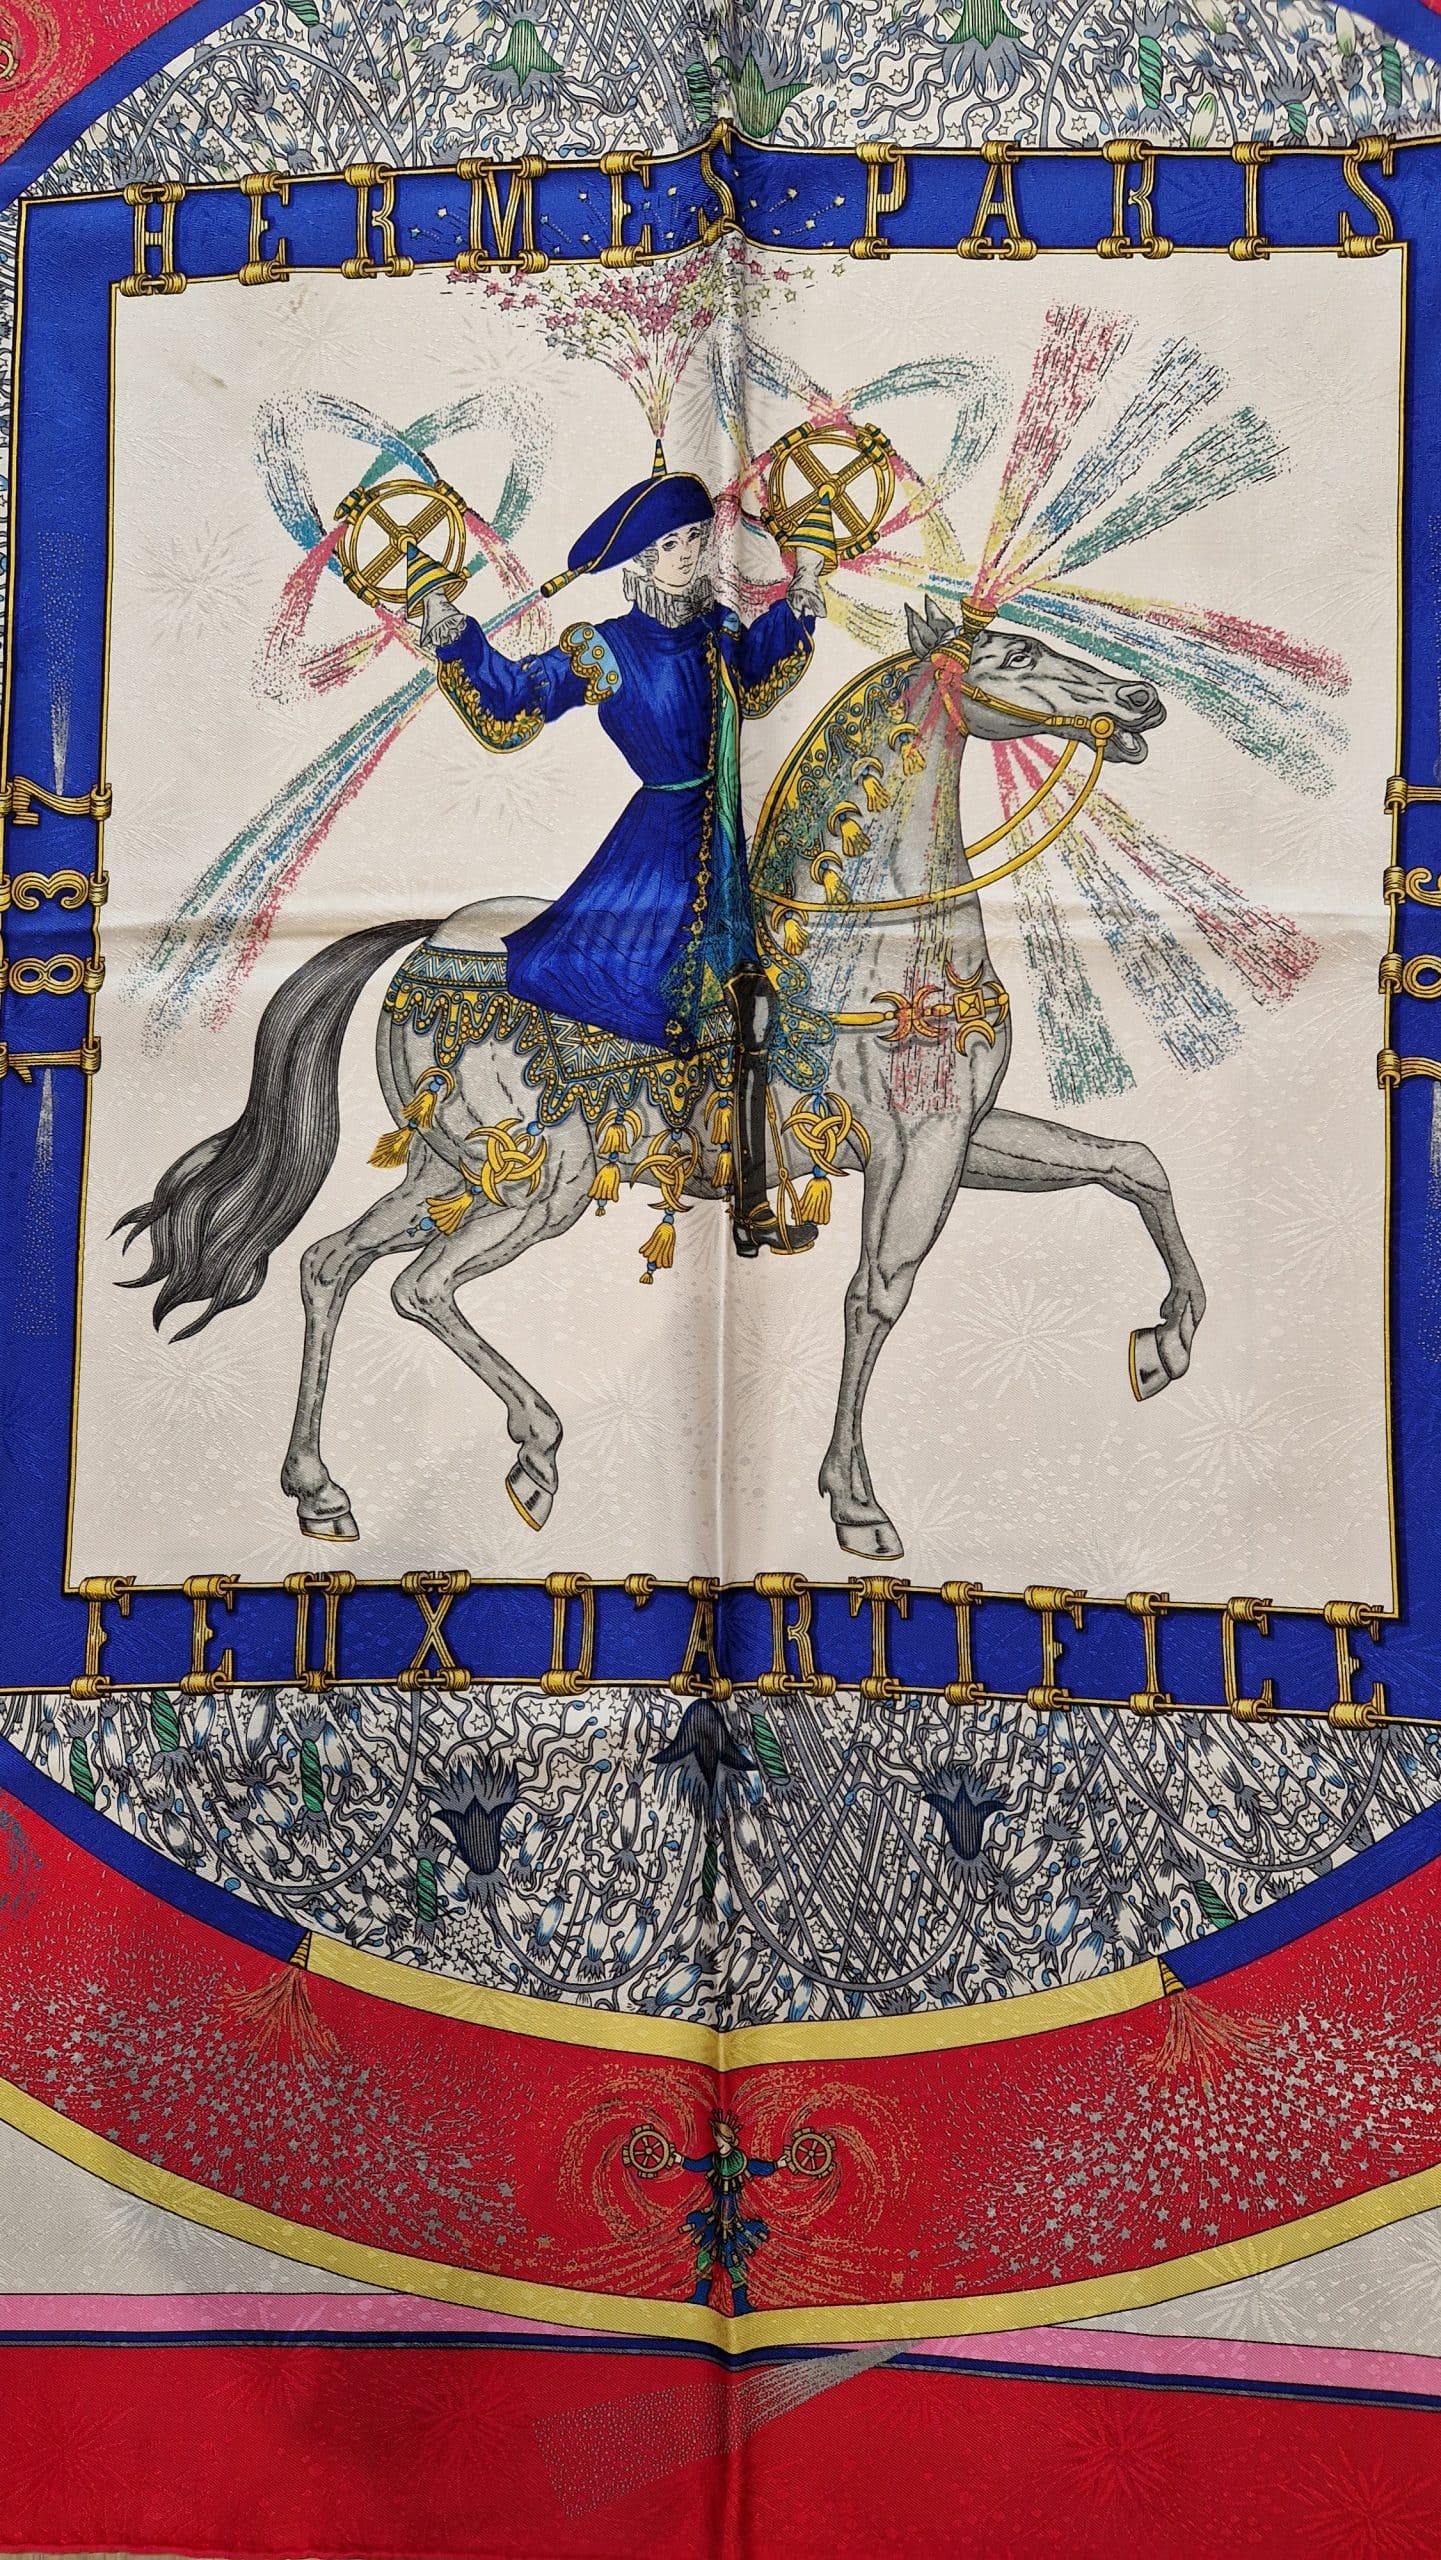 HERMES PARIS
1837
FEUX D'ARTIFICE